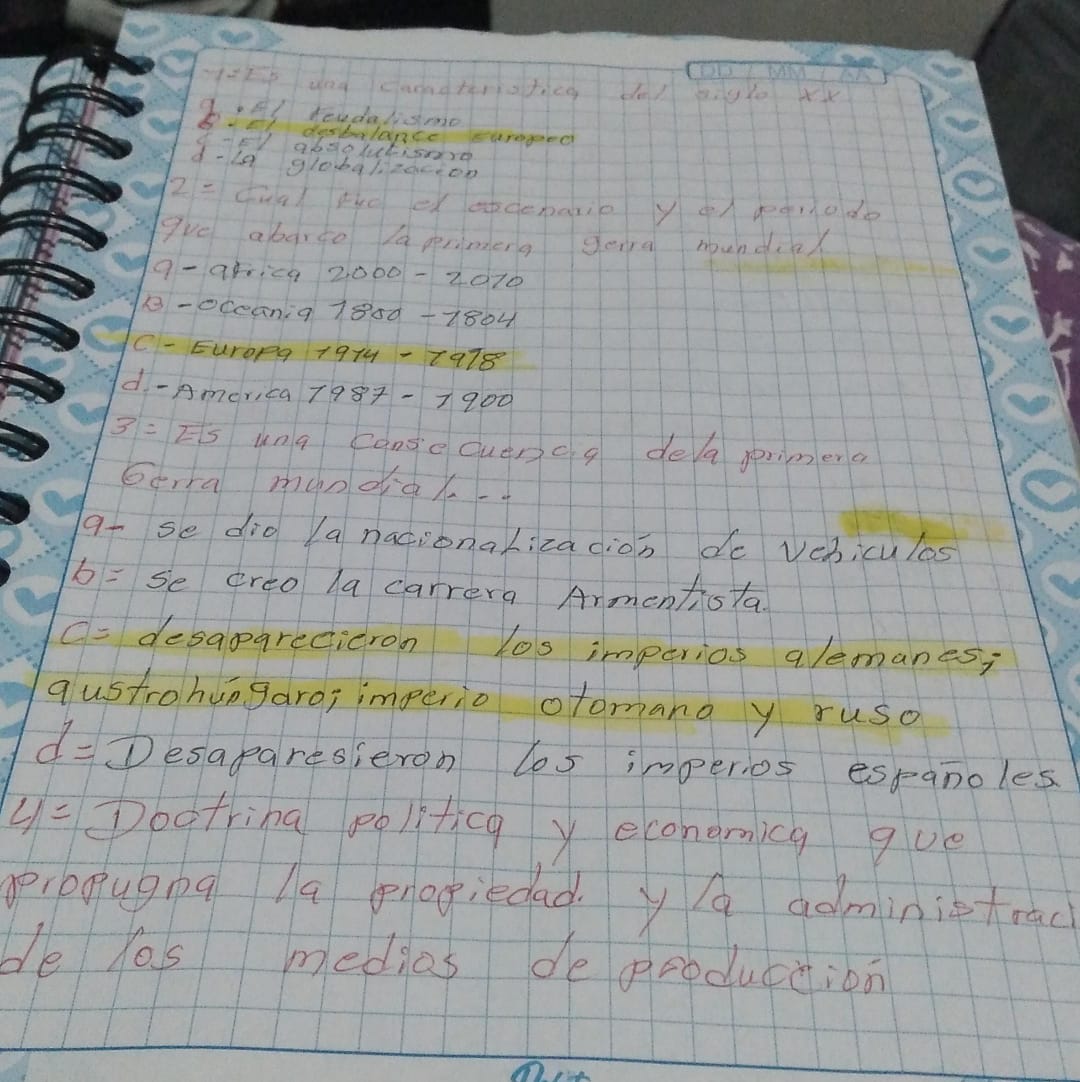 DD / MM / AA
1=Es una caracteristica del siglo XX
a.-El feudalismo
B.-El desbalance europeo
c-El absolutismo
d-la globalizacion
2= Cual fue el escenario y el periodo
que abarco la primera gerra mundial
a-africa 2000-2010
B-oceania 1800-1804
C-Europa 1914-1918
d.-America 1987-1900
3=ES una consecuencia dela primera
Gerra mundial...
a- se dio la nacionalizacion de vehiculos
b= se creo la carrera Armentista.
C= desaparecieron los imperios alemanes;
austrohúngaro; imperio otomano y ruso
d=Desaparesieron los imperios españoles.
4=Doctrina politica y economica que
propugna la propiedad. y la administrac
de los medios de producción